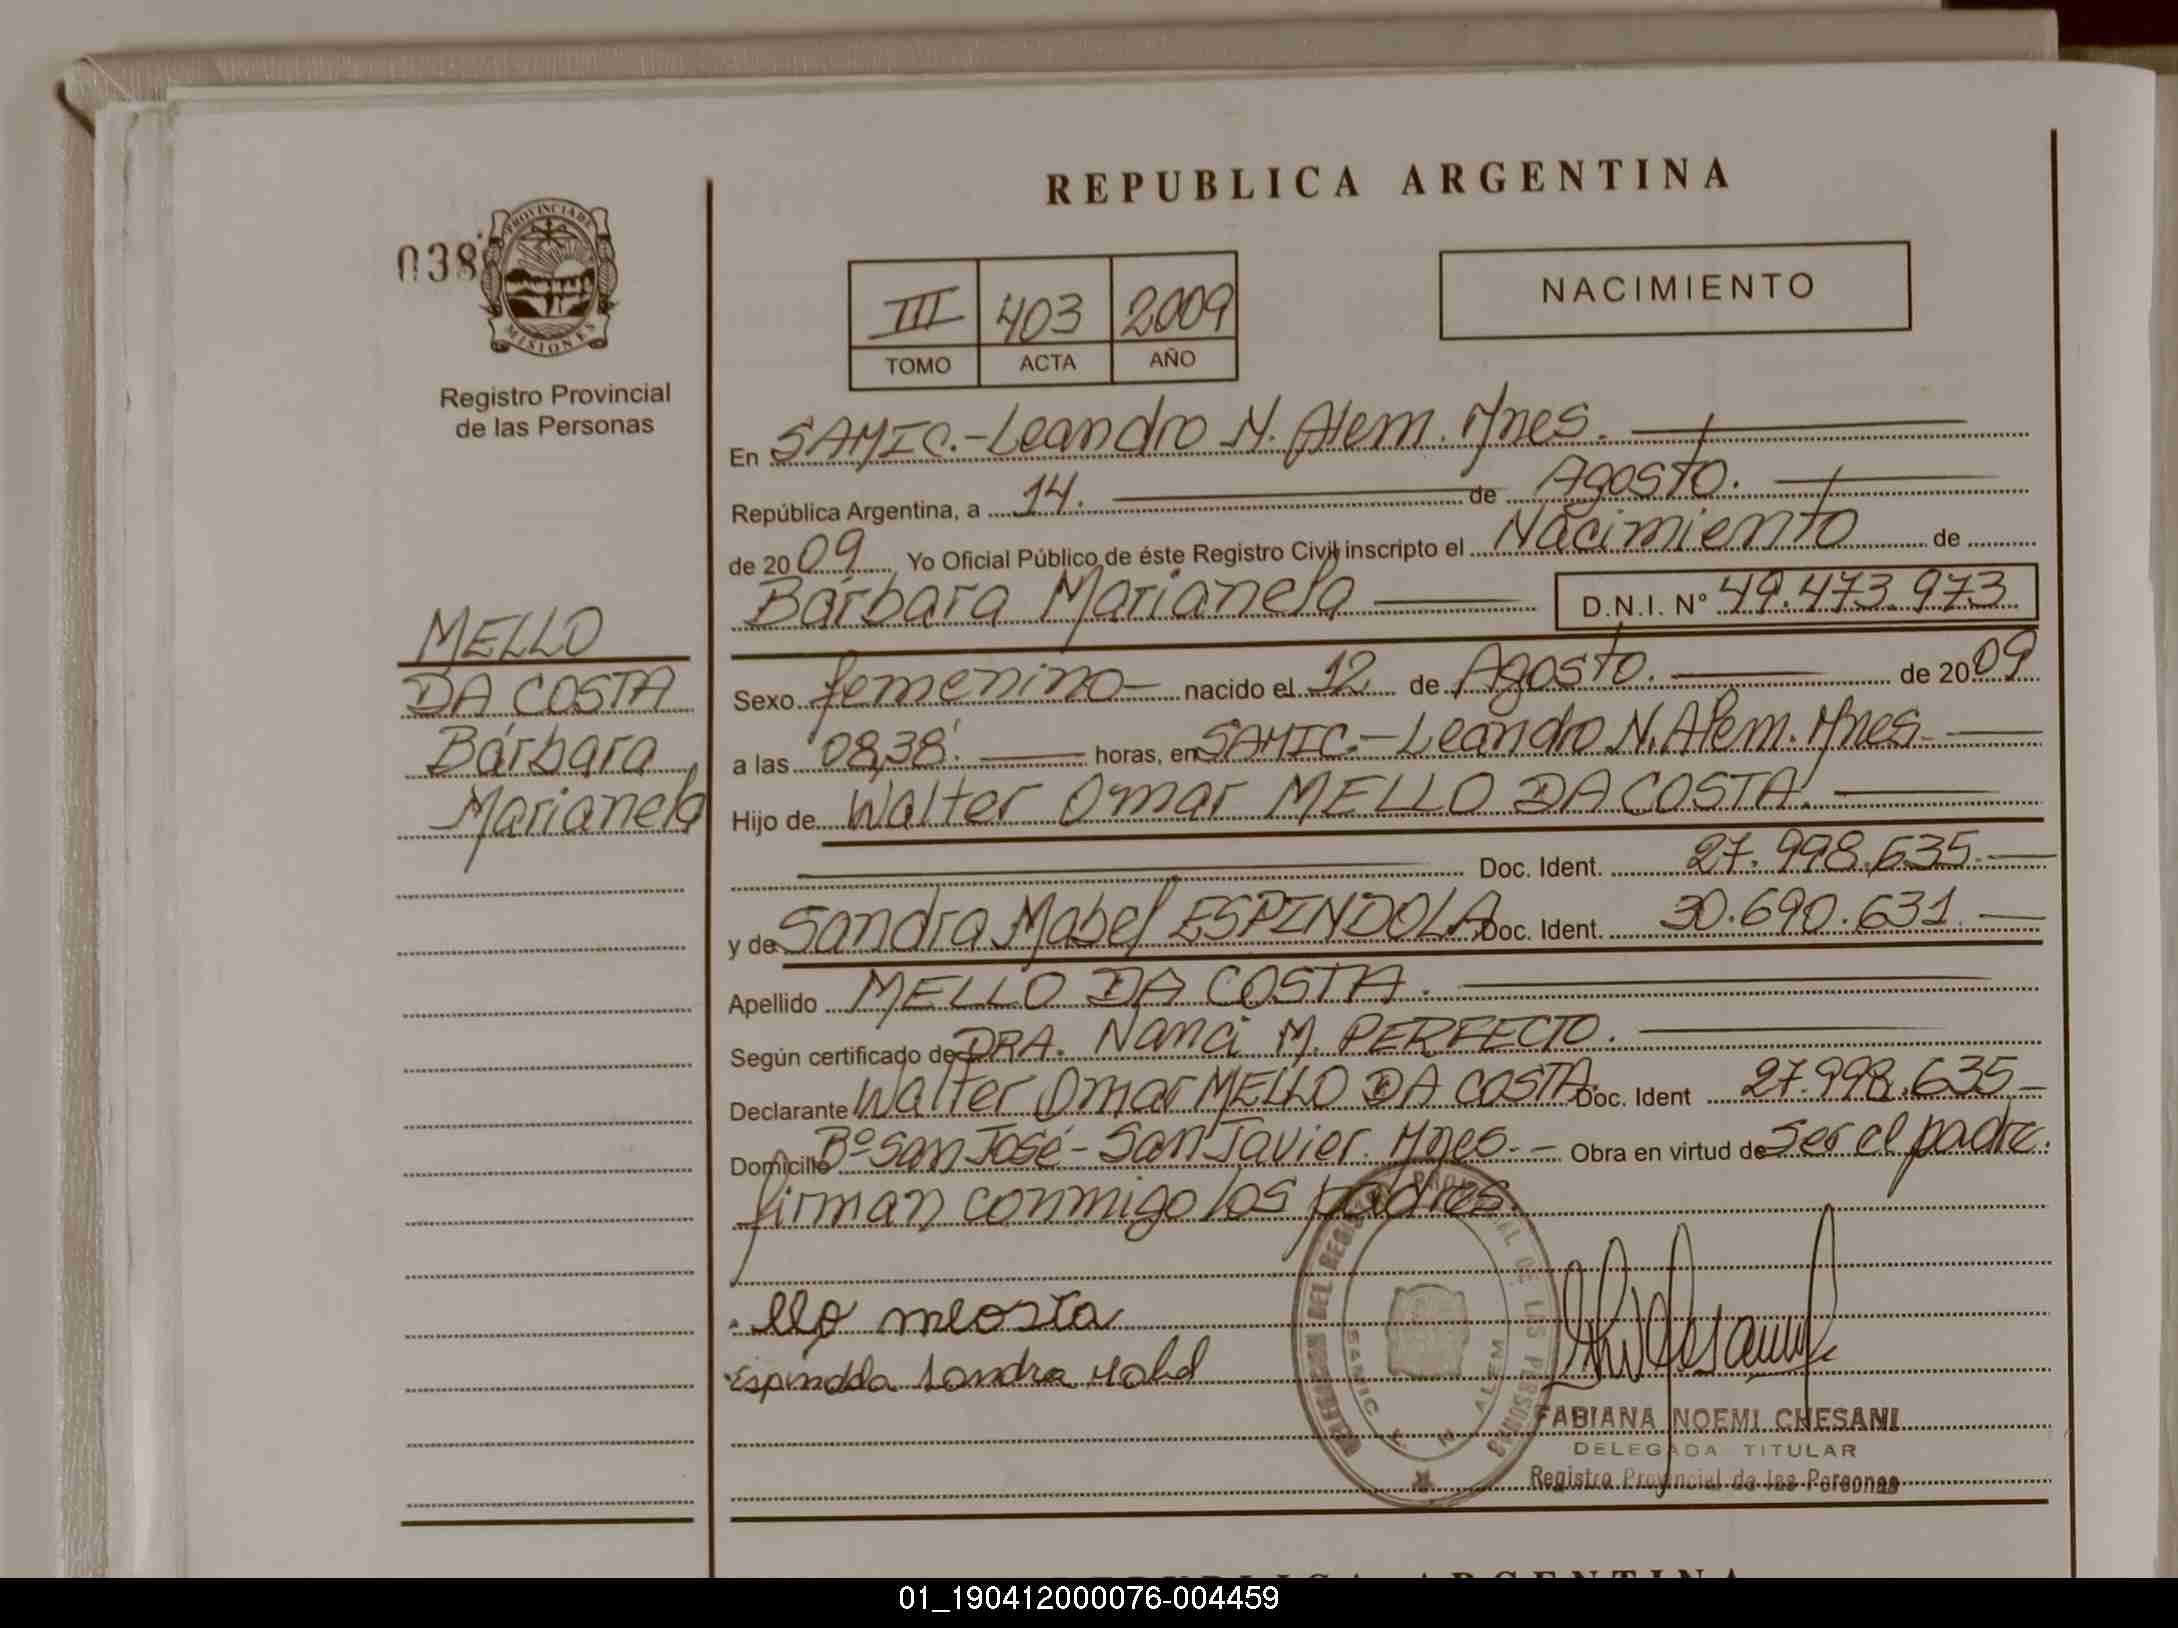 REPUBLICA ARGENTINA
038
PROVINCIA DE
MISIONES
Registro Provincial
de las Personas
III 403 2009
TOMO ACTA AÑO
NACIMIENTO
MELLO
DA COSTA
Bárbara
Marianela
En SAMIC.-Leandro N. Alem. Mnes.
República Argentina, a 14. de Agosto.
de 2009 Yo Oficial Público de éste Registro Civil inscripto el Nacimiento de
Bárbara Marianela D.N.I. Nº 49.473.973
Sexo femenino nacido el 12 de Agosto. de 2009
a las 08,38'. horas, en SAMIC.-Leandro N. Alem. Mnes.
Hijo de Walter Omar MELLO DA COSTA.
Doc. Ident. 27.998.635.
y de Sandra Mabel ESPINDOLA Doc. Ident. 30.690.631.
Apellido MELLO DA COSTA.
Según certificado de DRA. Nanci M. PERFECTO.
Declarante Walter Omar MELLO DA COSTA. Doc. Ident 27.998.635
Domicilio Bº San José - San Javier. Mnes. Obra en virtud de ser el padre.
firman conmigo los padres.
Espindola Sandra
DELEGACION DEL REGISTRO PROVINCIAL DE LAS PERSONAS
SAMIC L. N. ALEM
FABIANA NOEMI CHESANI
DELEGADA TITULAR
Registro Provincial de las Personas
REPUBLICA ARGENTINA
01_190412000076-004459